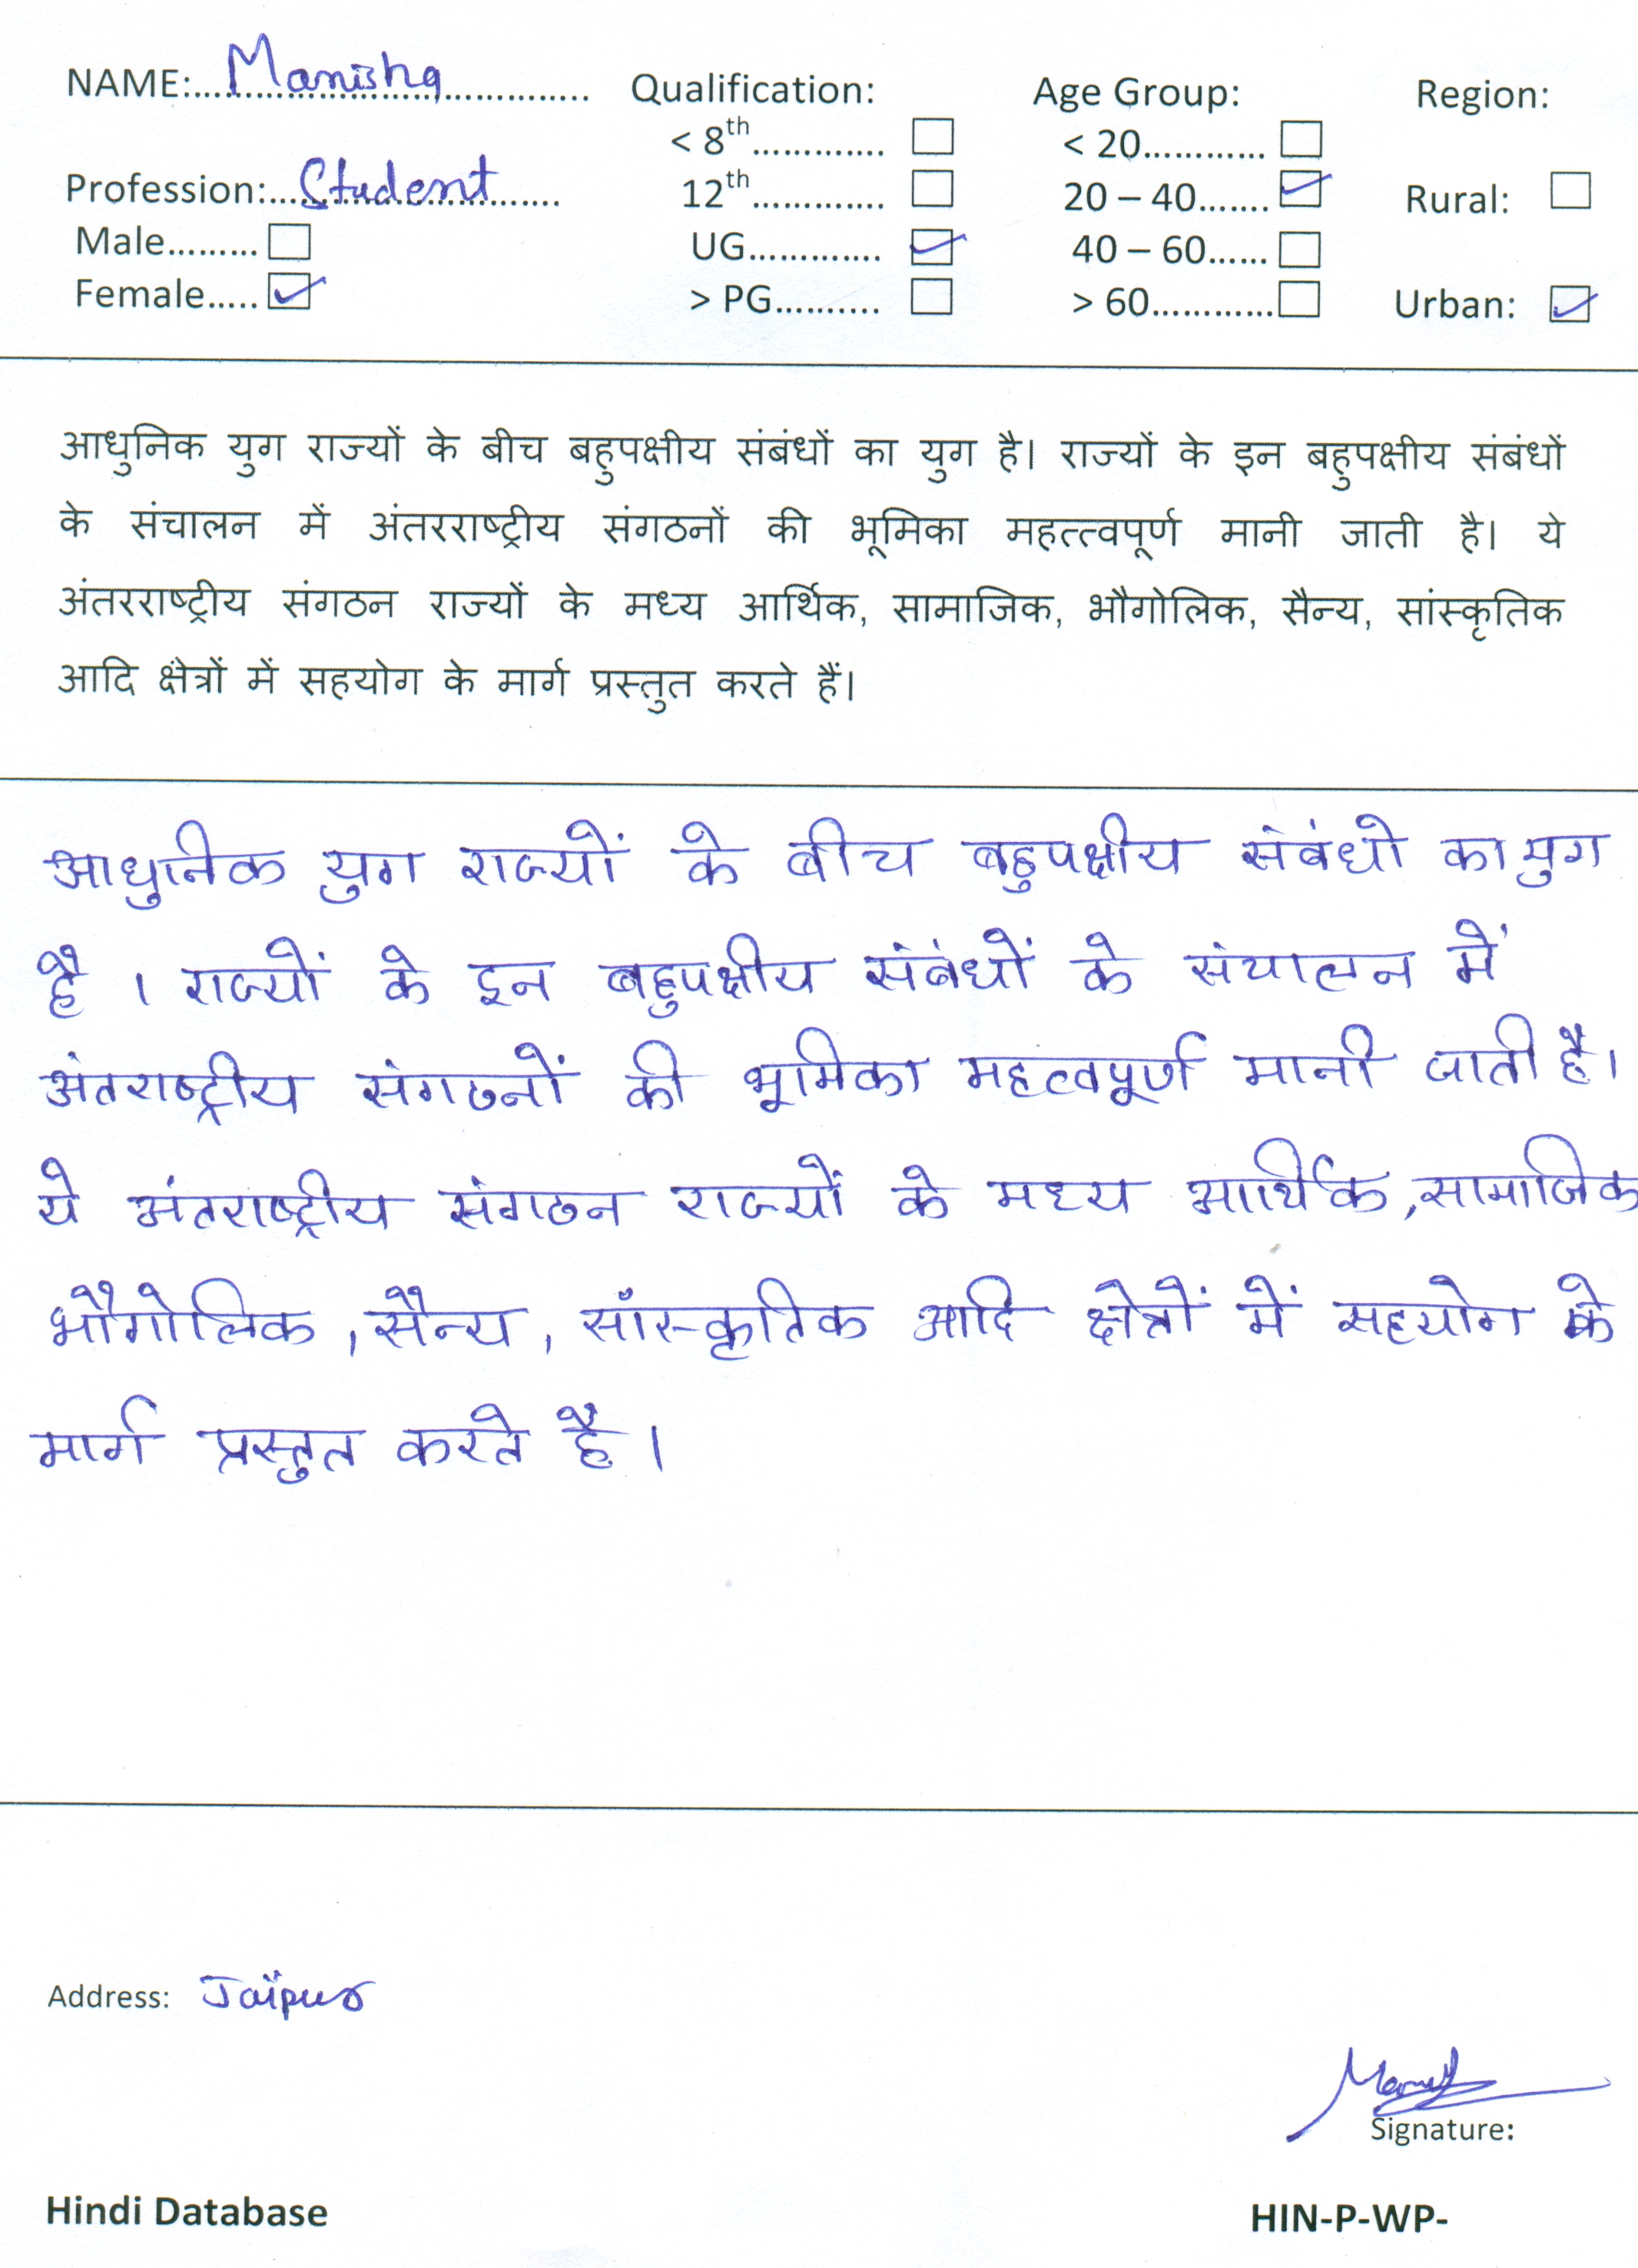 NAME:.... Manisha ....
Qualification:
Age Group:
Region:
< 8th.............
< 20............
Profession:.... Student ....
12th.............
20 – 40.......
Rural:
Male.........
UG.............
40 – 60......
Female.....
> PG..........
> 60............
Urban:
आधुनिक युग राज्यों के बीच बहुपक्षीय संबंधों का युग है। राज्यों के इन बहुपक्षीय संबंधों
के संचालन में अंतरराष्ट्रीय संगठनों की भूमिका महत्त्वपूर्ण मानी जाती है। ये
अंतरराष्ट्रीय संगठन राज्यों के मध्य आर्थिक, सामाजिक, भौगोलिक, सैन्य, सांस्कृतिक
आदि क्षेत्रों में सहयोग के मार्ग प्रस्तुत करते हैं।
आधुनिक युग राज्यों के बीच बहुपक्षीय संबंधो का युग
है । राज्यों के इन बहुपक्षीय संबंधों के संचालन में
अंतराष्ट्रीय संगठनों की भूमिका महत्वपूर्ण मानी जाती है।
ये अंतराष्ट्रीय संगठन राज्यों के मध्य आर्थिक, सामाजिक
भौगोलिक, सैन्य, साँस्कृतिक आदि क्षेत्रों में सहयोग के
मार्ग प्रस्तुत करते है ।
Address: Jaipur
Signature:
Hindi Database
HIN-P-WP-